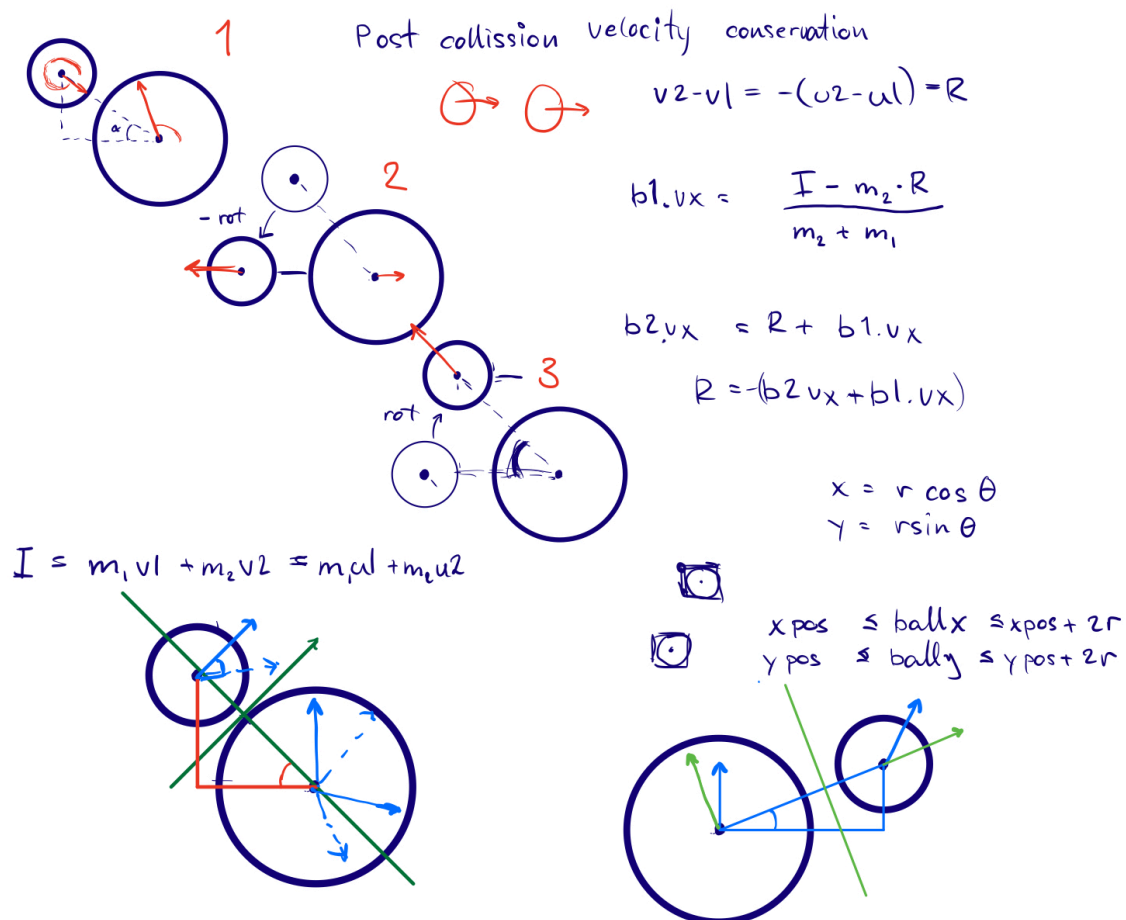 1
Post collission velocity conservation
v2-v1 = -(u2-u1) = R
α
2
- rot
b1.vx = I - m₂·R / m₂ + m₁
b2.vx = R + b1.vx
3
R = -(b2vx + b1.vx)
rot
x = r cos θ
y = r sin θ
I = m₁v1 + m₂v2 = m₁u1 + m₂u2
xpos ≤ ballx ≤ xpos + 2r
ypos ≤ bally ≤ ypos + 2r